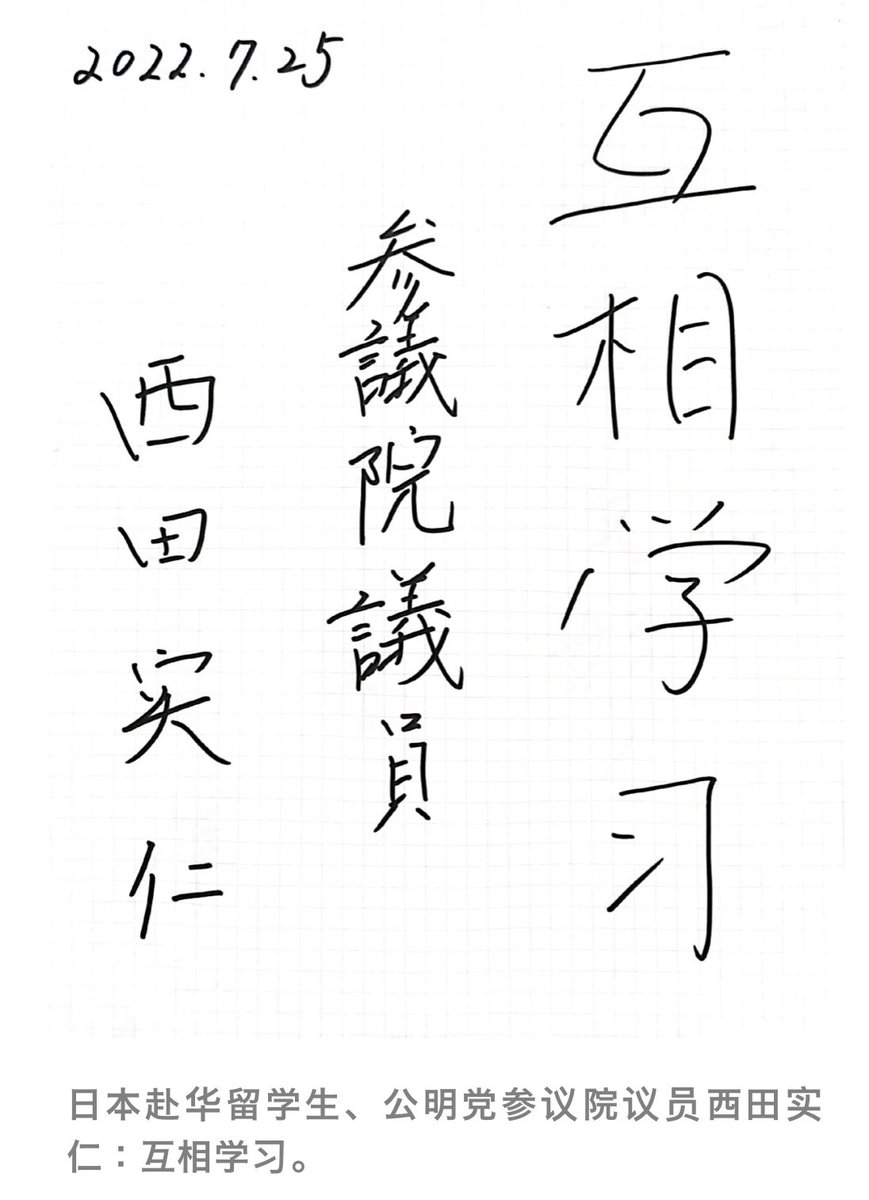 2022.7.25
互相学习
参議院議員
西田実仁
日本赴华留学生、公明党参议院议员西田实
仁：互相学习。